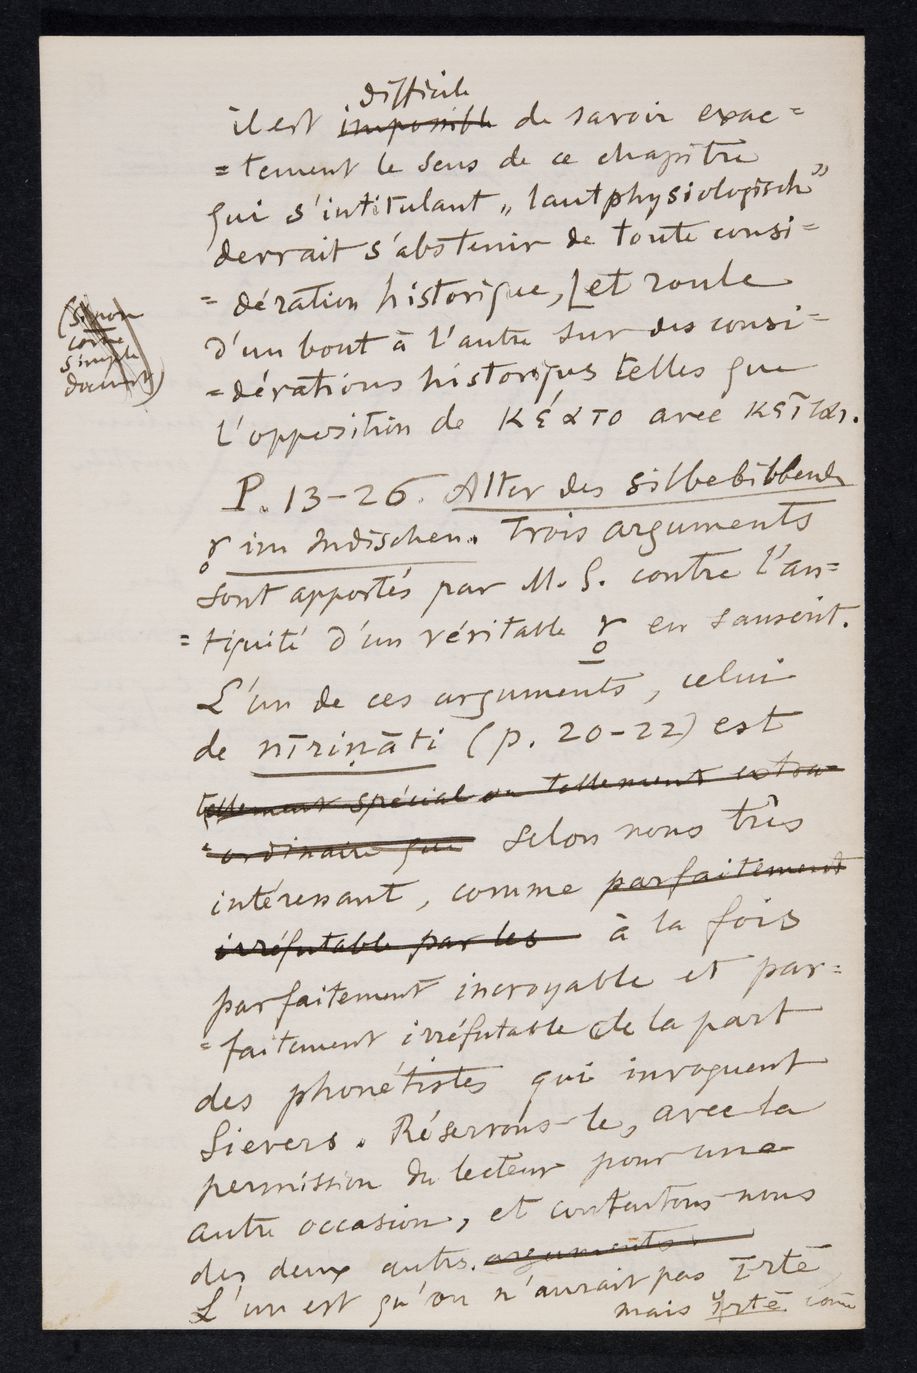 difficile
il est impossible de savoir exac=
=tement le sens de ce chapitre
qui s'intitulant „lautphysiologisch”
devrait s'abstenir de toute consi=
=dération historique, [et roule
d'un bout à l'autre sur des consi=
=dérations historiques telles que
l'opposition de κέατο avec κεῖται.
(Sinon
comme
simple
P. 13-26. Alter des silbebildenden
r̥ im Indischen. Trois arguments
sont apportés par M. G. contre l'an=
=tiquité d'un véritable r̥ en sanscrit.
L'un de ces arguments, celui
de nīriṇāti (p. 20-22) est
tellement spécial ou tellement extra=
=ordinaire que selon nous très
intéressant, comme parfaitement
irréfutable par les à la fois
parfaitement incroyable et par=
=faitement irréfutable de la part
des phonétistes qui invoquent
Sievers. Réservons-le, avec la
permission du lecteur pour une
autre occasion, et contentons-nous
des deux autres. arguments.
L'un est qu'on n'aurait pas īrtē
mais